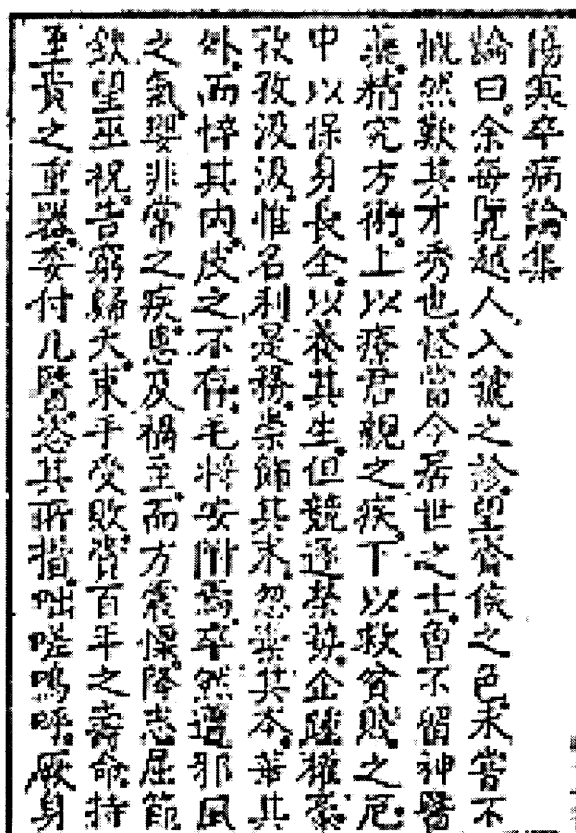 傷寒卒病論集
論曰余每覽越人入虢之診望齊侯之色未嘗不
慨然歎其才秀也怪當今居世之士曾不留神醫
藥精究方術上以療君親之疾下以救貧賤之厄
中以保身長全以養其生但競逐榮勢企踵權豪
孜孜汲汲惟名利是務崇飾其末忽棄其本華其
外而悴其內皮之不存毛將安附焉卒然遭邪風
之氣嬰非常之疾患及禍至而方震慄降志屈節
欽望巫祝告窮歸天束手受敗賫百年之壽命持
至貴之重器委付凡醫恣其所措咄嗟嗚呼厥身